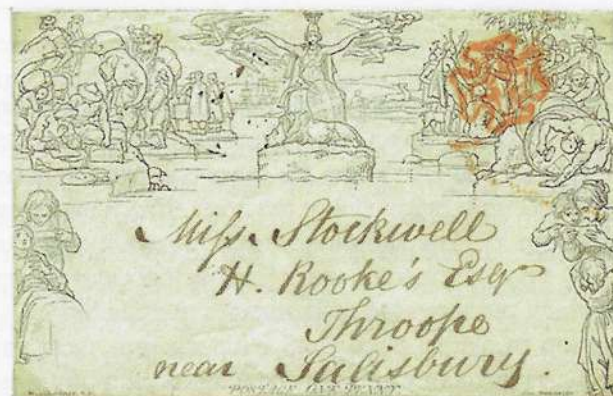 Miſs. Stockwell
H. Rooke's Esqr
Throope
near Salisbury.
POSTAGE ONE PENNY.